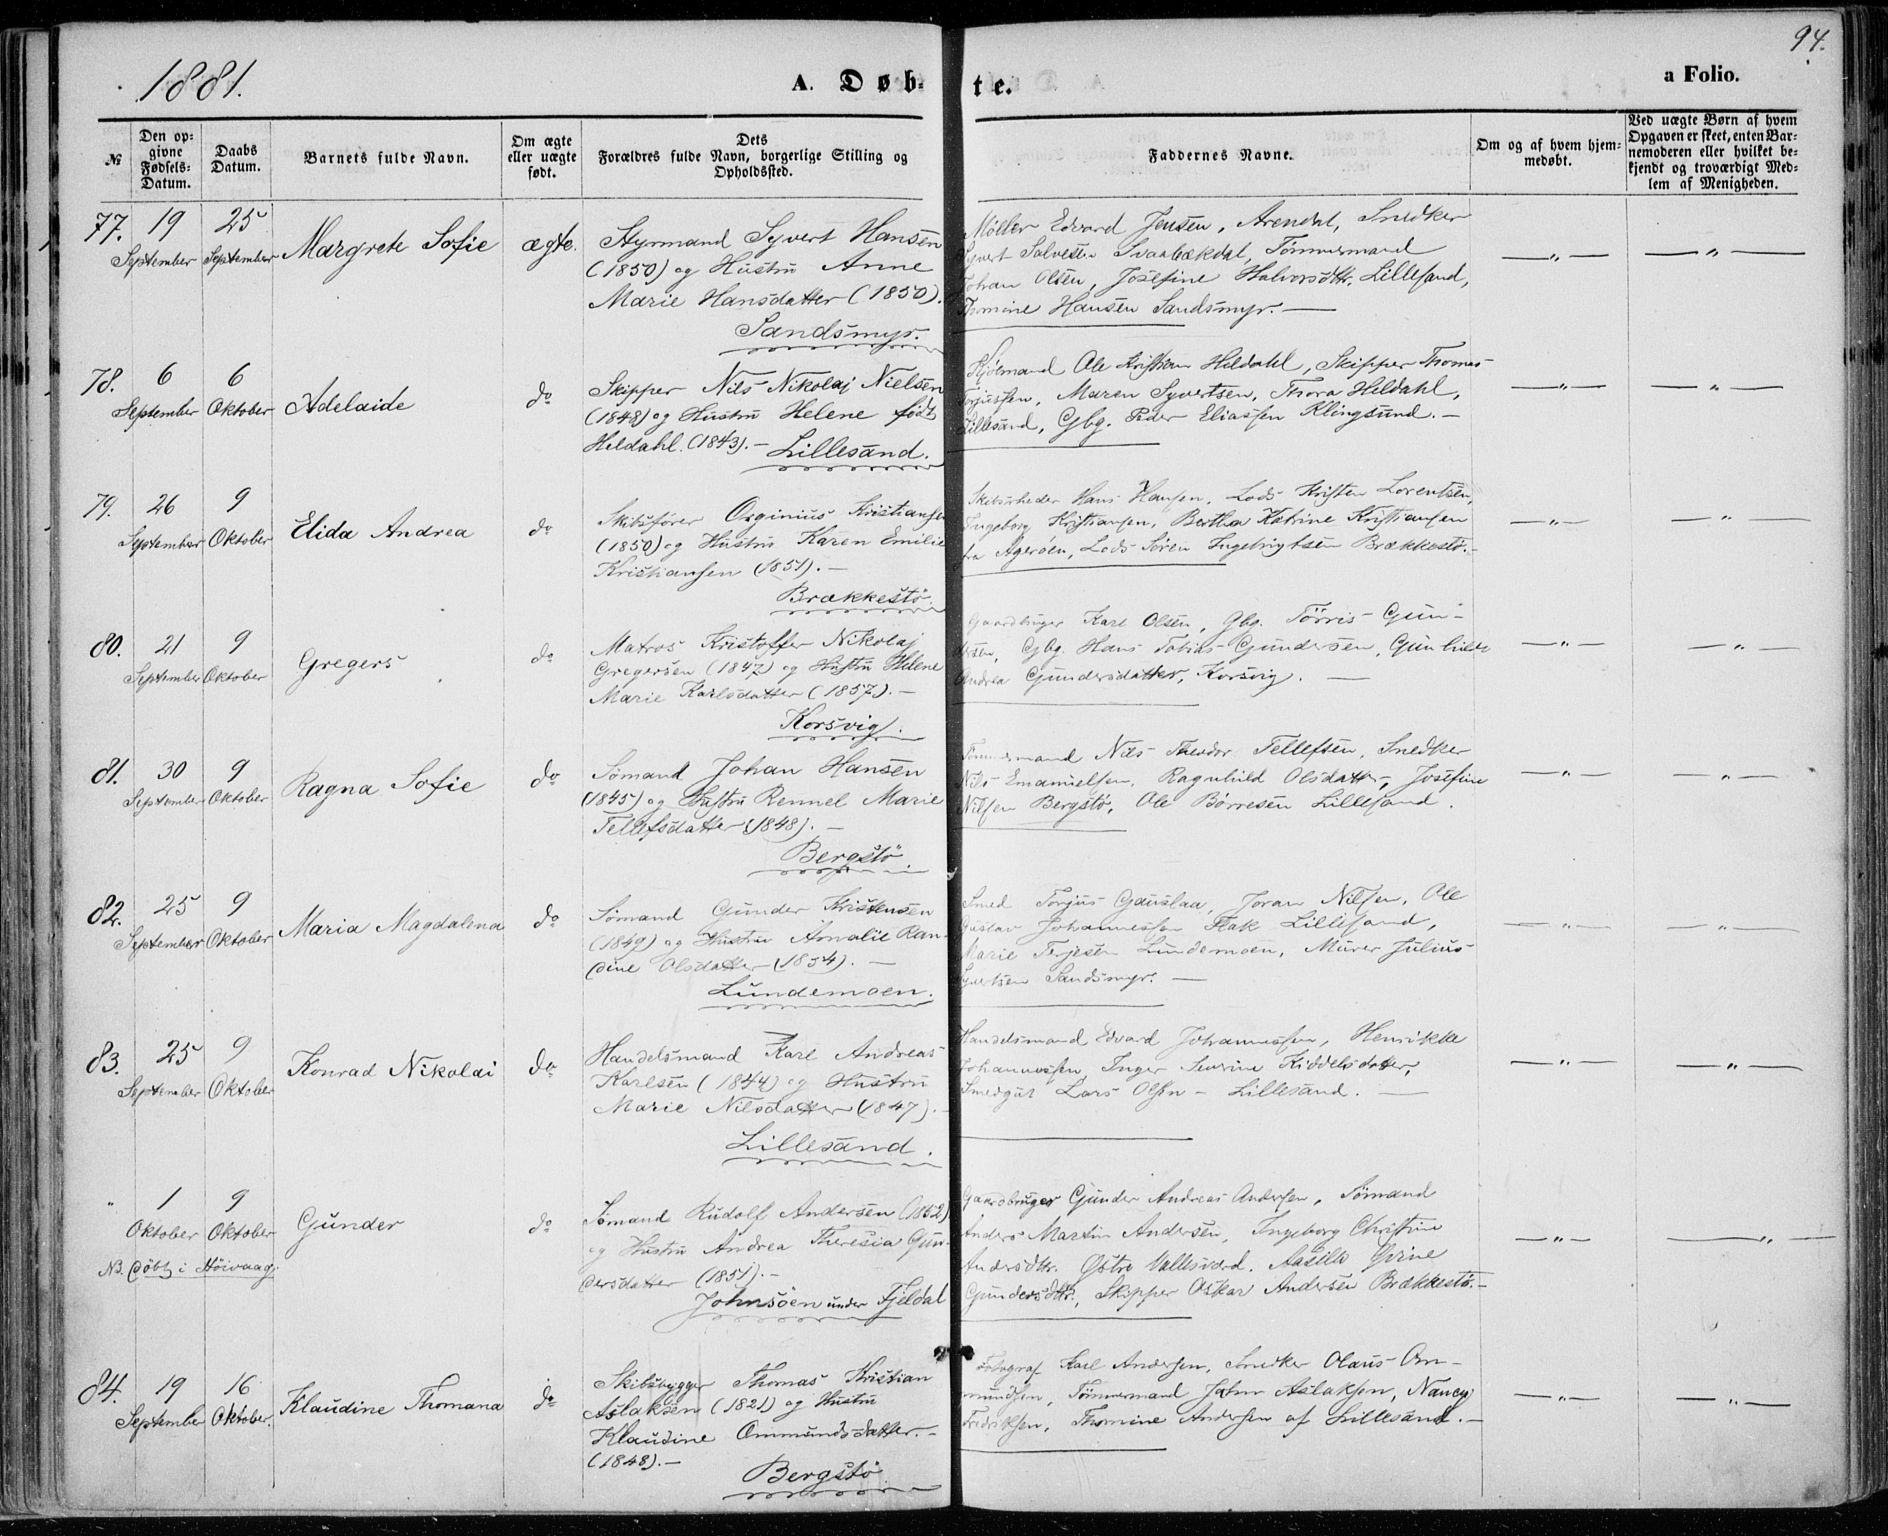 94.
1881.
A. Døbte.
a Folio.
№
Den opgivne Fødsels-Datum.
Daabs Datum.
Barnets fulde Navn.
Om ægte eller uægte født.
Dets Forældres fulde Navn, borgerlige Stilling og Opholdssted.
Faddernes Navne.
Om og af hvem hjemmedøbt.
Ved uægte Børn af hvem Opgaven er skeet, enten Barnemoderen eller hvilket bekjendt og troværdigt Medlem af Menigheden.
77. 19 September 25 September Margrete Sofie ægte.
Styrmand Syvert Hansen
(1850) og Hustru Anne
Marie Hansdatter (1850).
Sandsmyr.
Møller Edvard Jensen, Arendal, Snedker
Syvert Salvesen Svarbækdal, Tømmermand
Johan Olsen, Josefine Halvorsdtr. Lillesand,
Thomine Hansen Sandsmyr. —
—„— —„—
78. 6 September 6 Oktober Adelaide do
Skipper Nils Nikolaj Nielsen
(1848) og Hustru Helene født
Heldahl. (1843). — Lillesand.
Ole Kristian Heldahl, Skipper Thomas
Torjussen, Maren Syvertsen, Thora Heldahl,
Lillesand, Gbg. Peder Eliassen Klingsund. —
—„— —„—
79. 26 September 9 Oktober Elida Andrea do
Skibsfører Orginius Kristiansen
(1850) og Hustru Karen Emilie
Kristiansen (1851). —
Brækkestø.
Skibsrheder Hans Hansen, Lods Kristen Lorentsen,
Ingeborg Kristiansen, Bertha Katrine Kristiansen
fra Agerøen, Lods Søren Ingebrigtsen Brækkestø. —
—„— —„—
80. 21 September 9 Oktober Gregers do
Matros Kristoffer Nikolaj
Gregersen (1847) og Hustru Helene
Marie Karlsdatter (1857). —
Korsvig.
Gaardbruger Karl Olsen, Gbg. Tørris Gun-
dersen, Gbg. Hans Tobias Gundersen, Gunhilde
Andrea Gundersdatter, Korsvig. —
—„— —„—
81. 30 September 9 Oktober Ragna Sofie do
Sømand Johan Hansen
(1845) og Hustru Rennel Marie
Tellefsdatter (1848). —
Bergstø.
Tømmermand Nils Theodor Tellefsen, Snedker
Nils Emanuelsen, Ragnhild Olsdatter, Josefine
Nilsen Bergstø, Ole Børresen Lillesand.
—„— —„—
82. 25 September 9 Oktober Maria Magdalena do
Sømand Gunder Kristensen
(1849) og Hustru Amalie Ran-
dine Olsdatter (1854). —
Lundemoen.
Smed Torjus Gauslaa, Joran Nilsen, Ole
Gustav Johannessen Flak Lillesand,
Marie Terjesen Lundemoen, Murer Julius
Syvertsen Sandsmyr. —
—„— —„—
83. 25 September 9 Oktober Konrad Nikolai do
Handelsmand Karl Andreas
Karlsen (1844) og Hustru
Marie Nilsdatter (1847). —
Lillesand.
Handelsmand Edvard Johannessen, Henrikke
Johannessen, Inger Severine Kiddelsdatter,
Smedgut Lars Olsen — Lillesand. —
—„— —„—
„ 1 Oktober 9 Oktober Gunder do
NB. døbt i Høivaag.
Sømand Rudolf Andersen (1852)
og Hustru Andrea Theresia Gun-
dersdatter (1851). —
Johnsøen under Fjeldal
Gaardbruger Gunder Andreas Andersen, Sømand
Anders Martin Andersen, Ingeborg Christine
Andersdtr. Østre Vallesværd. Aasille Gurine
Gundersdtr., Skipper Oskar Andersen Brækkestø. —
—„— —„—
84. 19 September 16 Oktober. Klaudine Thomana do
Skibsbygger Thomas Kristian
Aslaksen (1821) og Hustru
Klaudine Ommundsdatter. —
(1848). —
Bergstø
Fotograf Karl Andersen, Snedker Olaus Om-
mundsen, Tømmermand John Aslaksen, Nancy
Fredriksen, Thomine Andersen af Lillesand. —
—„— —„—